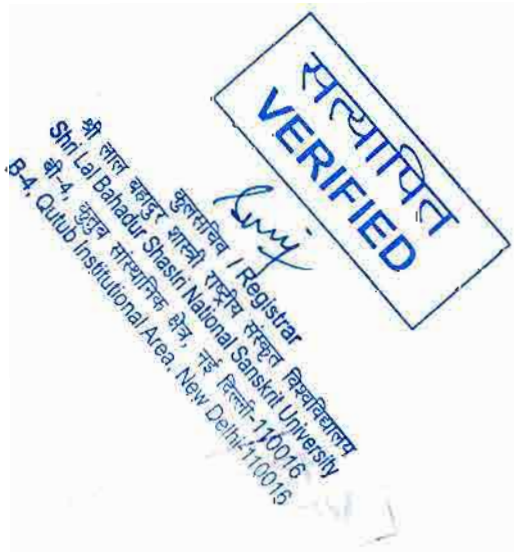 सत्यापित
VERIFIED
कुलसचिव / Registrar
श्री लाल बहादुर शास्त्री राष्ट्रीय संस्कृत विश्वविद्यालय
Shri Lal Bahadur Shastri National Sanskrit University
बी-4, कुतुब सांस्थानिक क्षेत्र, नई दिल्ली-110016
B-4, Qutub Institutional Area, New Delhi-110016